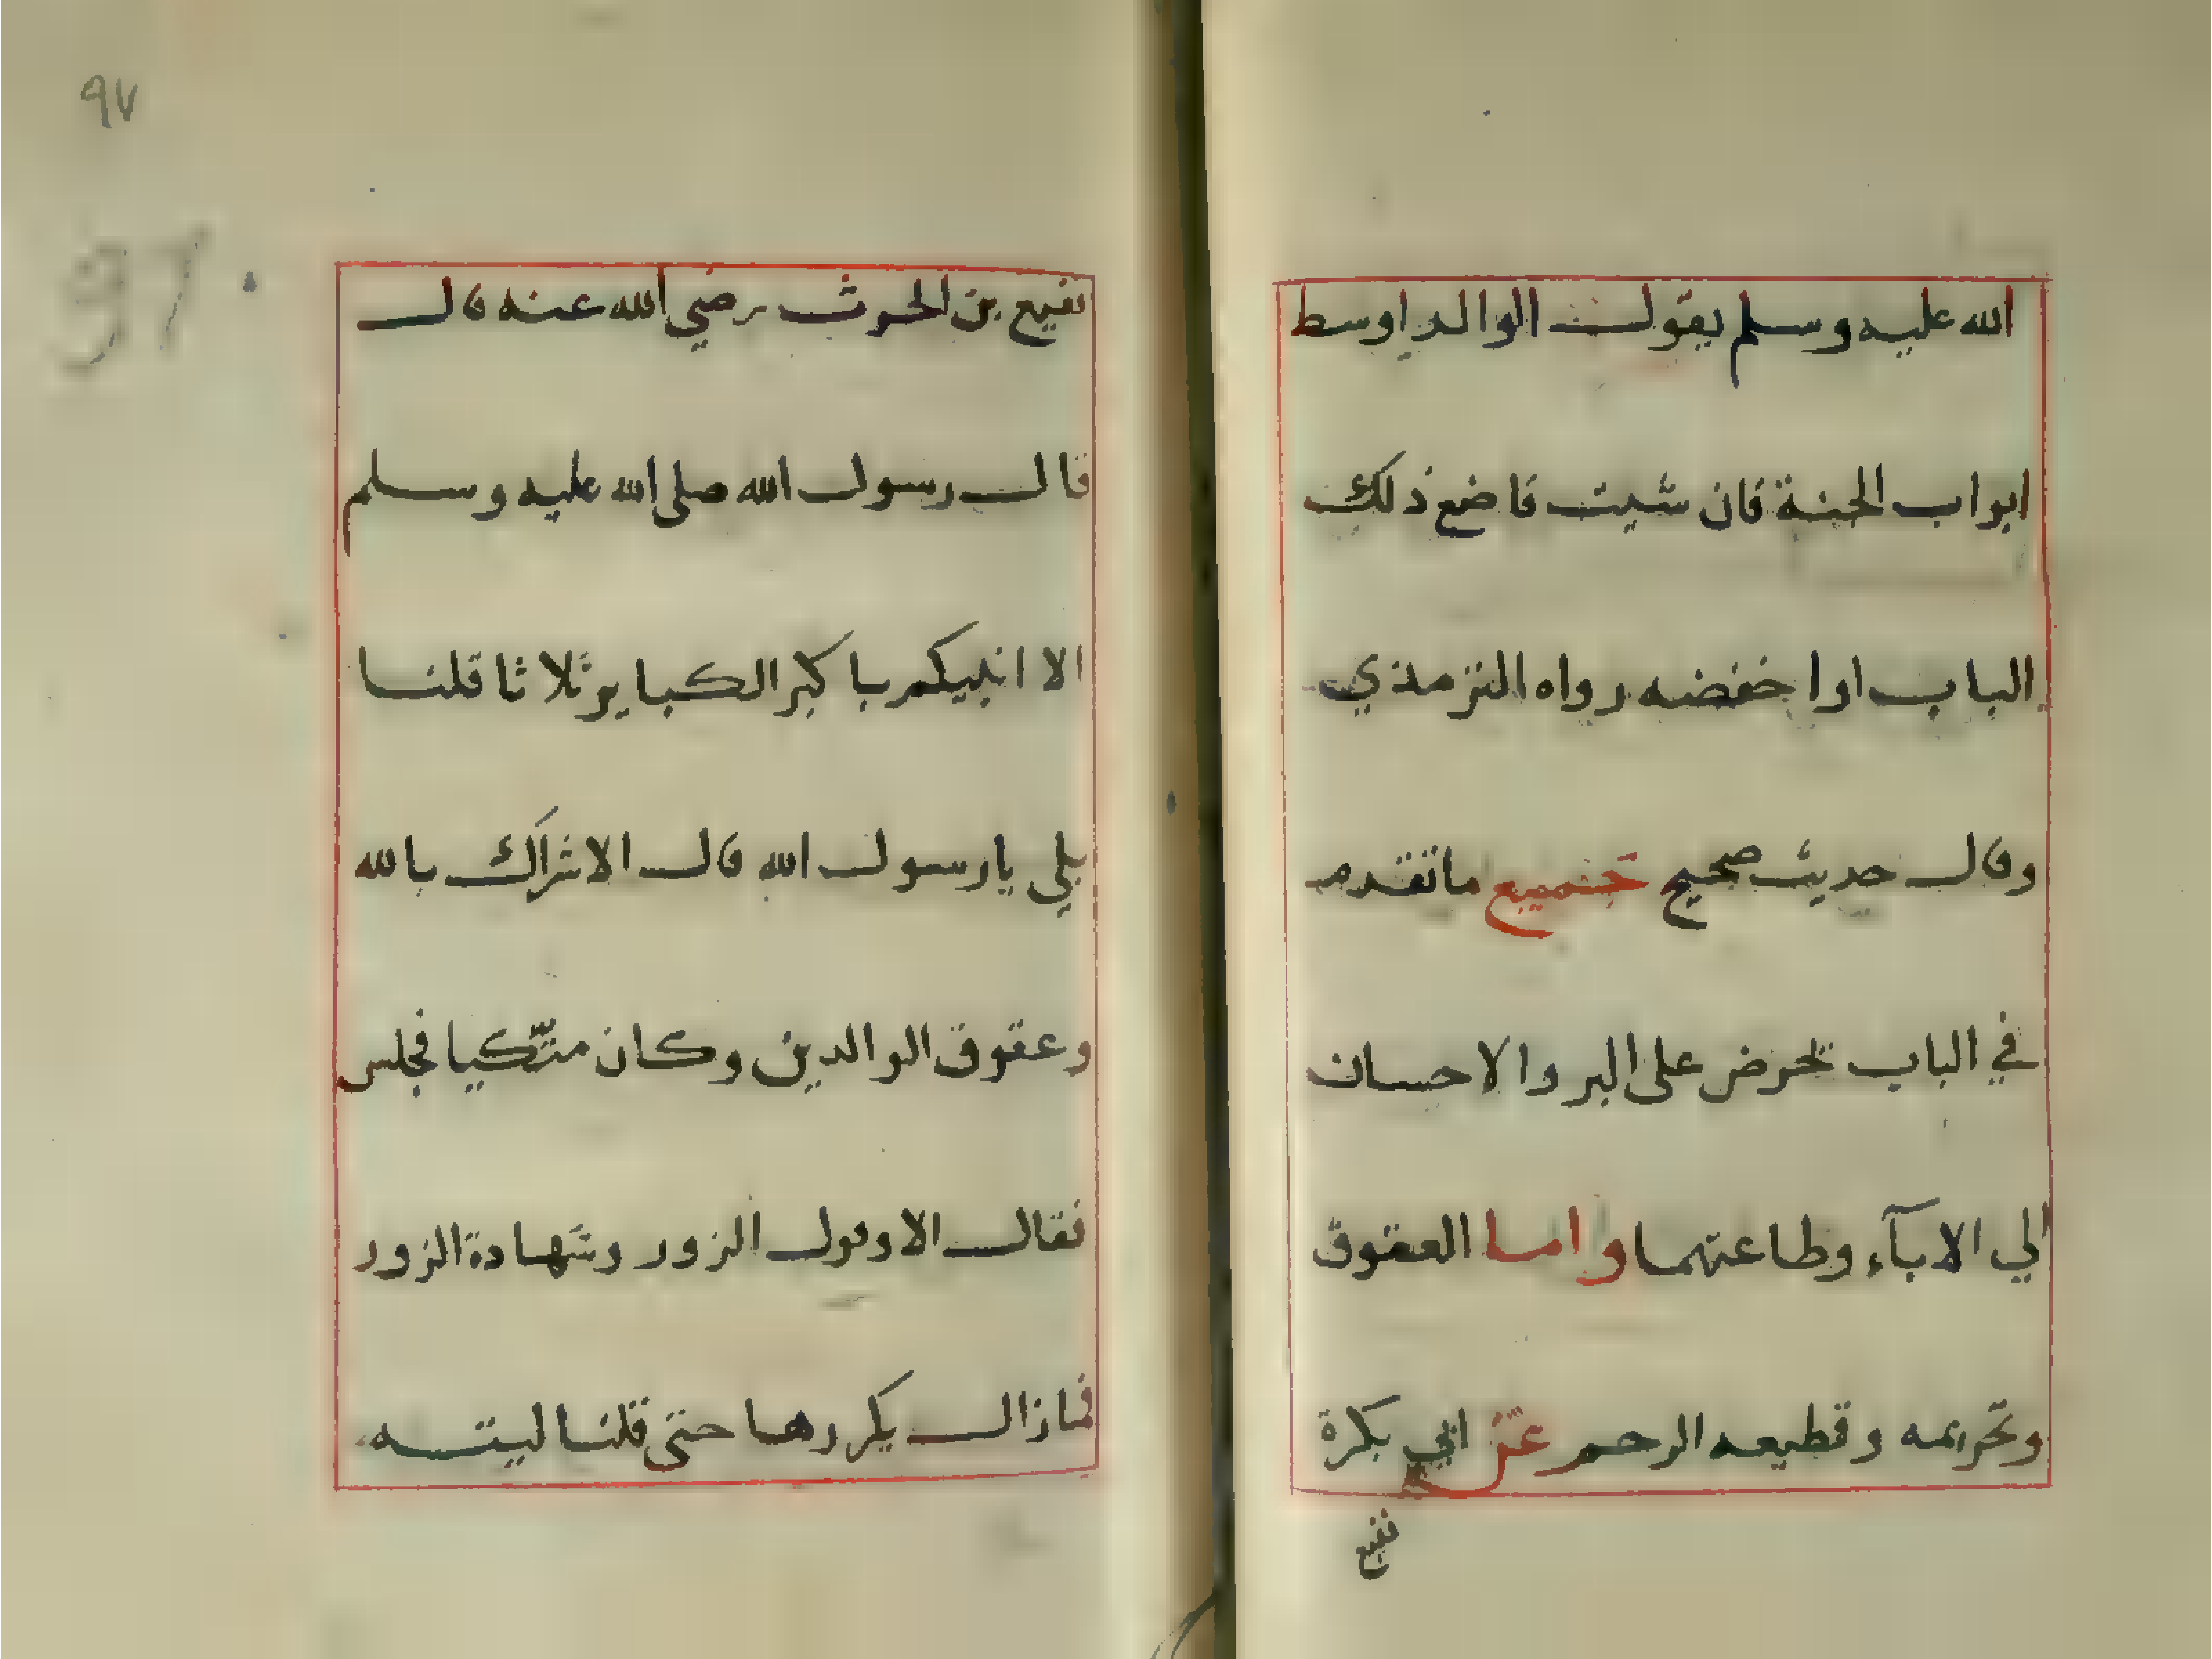 الله عليه وسلم يقول الوالد اوسط
ابواب الجنة فان شيت فاضع ذلك
الباب او اخفضه رواه الترمذي
وقال حديث صحيح جميع ما تقدم
في الباب تحرض على البر والاحسان
الي الابآء وطاعتهما واما العقوق
وتحريمه وقطيعه الرحم عن ابي بكرة
نفيع
٩٧
97
نفيع بن الحرث رضي الله عنه قال
قال رسول الله صلى الله عليه وسلم
الا انبيكم باكبر الكباير ثلاثا قلنا
بلي يا رسول الله قال الاشراك بالله
وعقوق الوالدين وكان متّكيا فجلس
فقال الا وقول الزور وشهادة الزور
فما زال يكررها حتى قلنا ليته